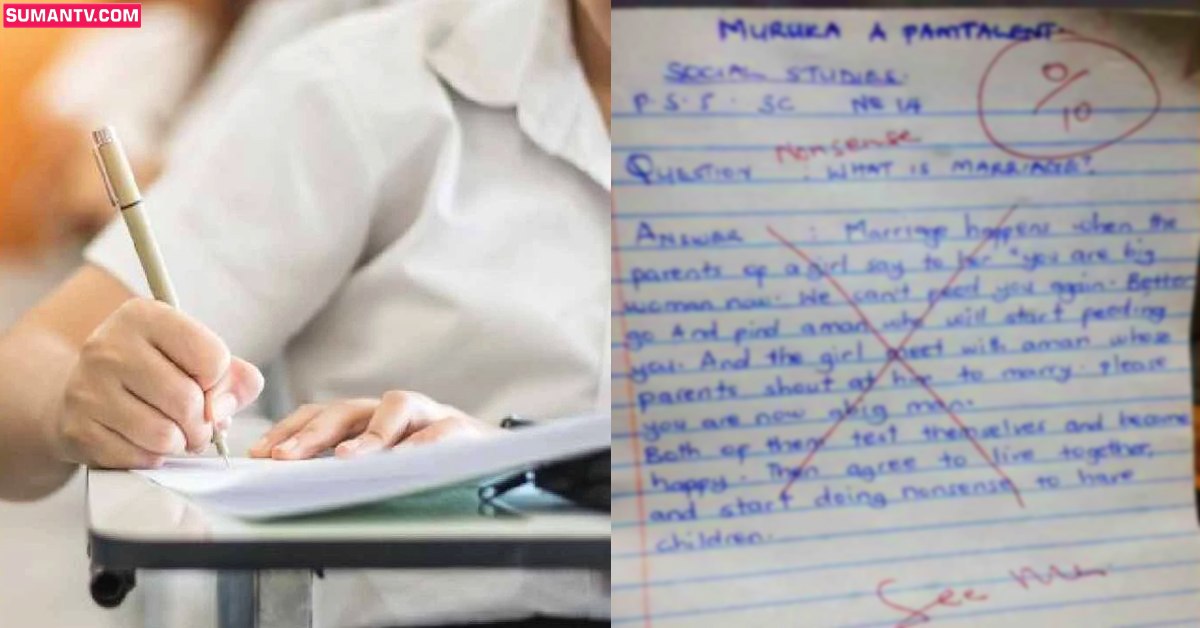 SUMANTV.COM
MURUKA A PAMTALENT.
SOCIAL STUDIES.
0/10
P.S.5. SC
Nonsense
QUESTION : WHAT IS MARRIAGE?
ANSWER : Marriage happens when the
parents of a girl say to her "you are big
woman now. We can't feed you again. Better
go And find a man who will start feeding
you. And the girl meet with a man whose
parents shout at him to marry. Please
you are now a big man.
Both of them test themselves and become
happy. Then agree to live together,
and start doing nonsense to have
children.
See Me